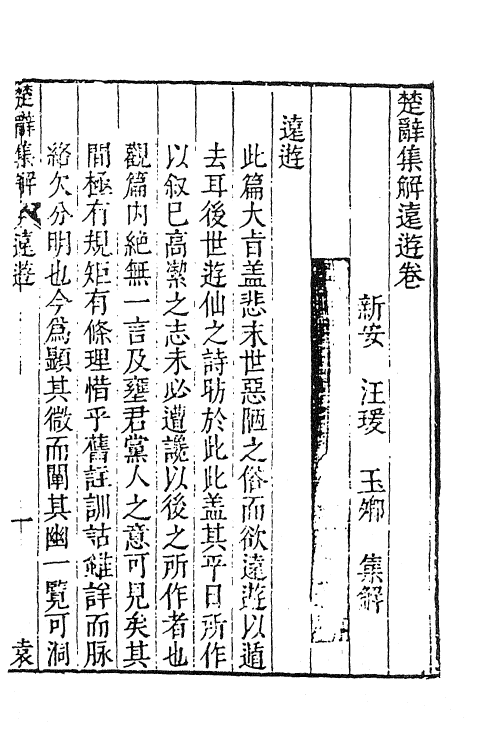 楚辭集解遠遊卷
新安　汪瑗　玉卿　集解
遠遊
此篇大㫖盖悲末世惡陋之俗而欲遠遊以遁
去耳後世遊仙之詩昉於此此盖其平日所作
以叙已高潔之志未必遭讒以後之所作者也
觀篇内絶無一言及壅君黨人之意可見矣其
間極有規矩有條理惜乎舊註訓詁雖詳而脉
絡欠分明也今爲顯其微而闡其幽一覽可洞
楚辭集解　遠遊　一　袁